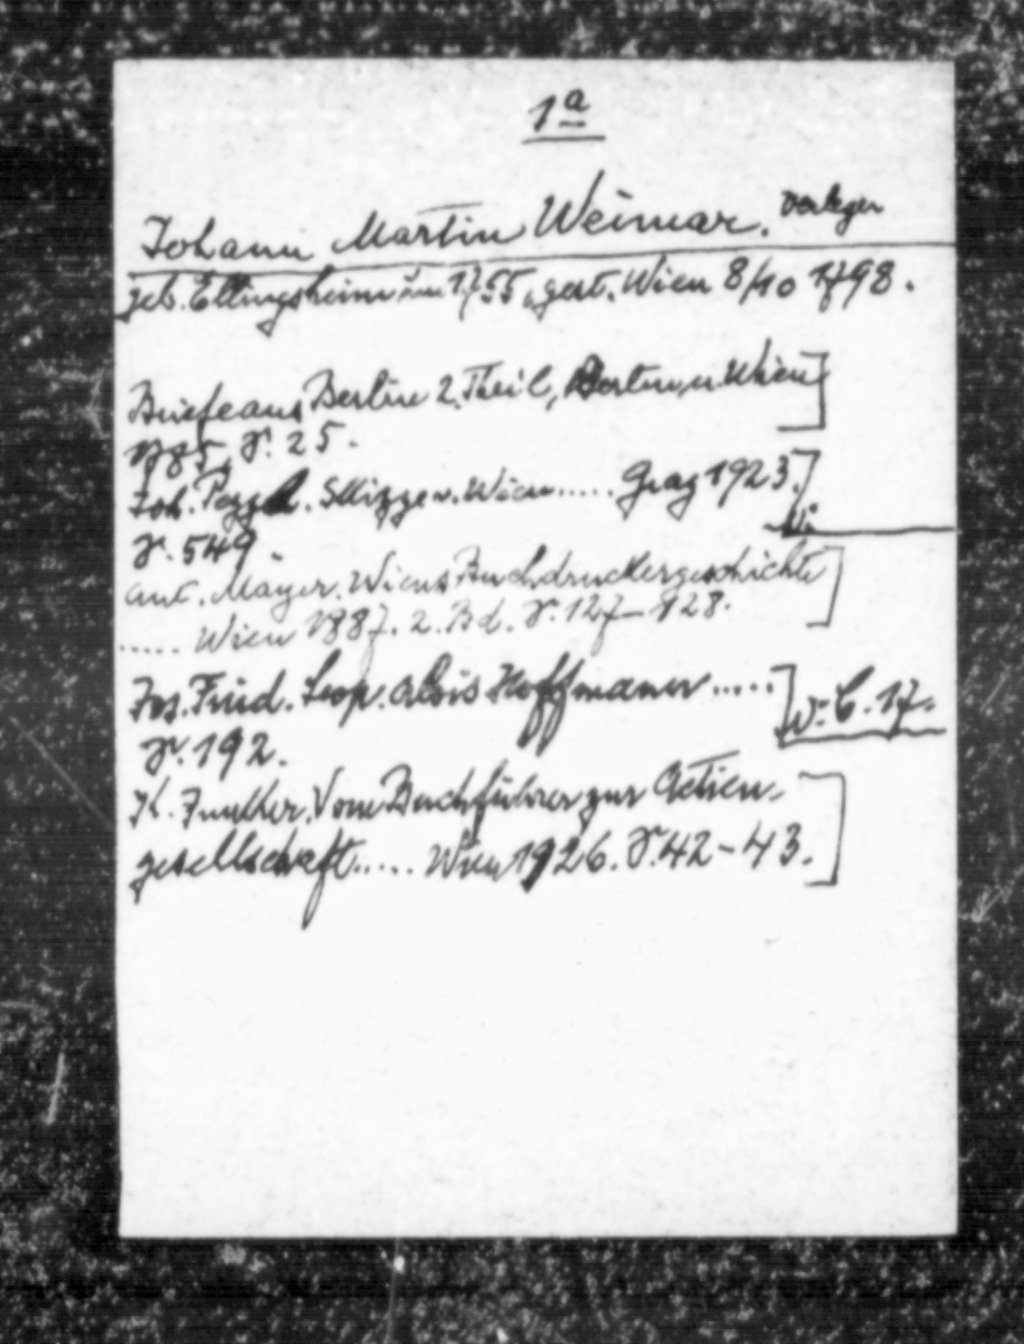 1a
Johann Martin Weimar. Verleger
geb. Ettingsheim um 1755, gest. Wien 8/10 1798.
Briefe aus Berlin 2. Theil, Berlin u. Wien]
1785, S. 25.
Joh. Pezzl. Skizze v. Wien ..... Graz 1923.]
S. 549.
Ant. Mayer. Wiens Buchdruckergeschichte]
..... Wien 1887. 2. Bd. S. 127–128.
Jos. Fried. Leop. Alois Hoffmann .....] W: C. 17.
S. 192.
K. Junker. Vom Buchführer zur Actien-
gesellschaft ..... Wien 1926. S. 42–43.]